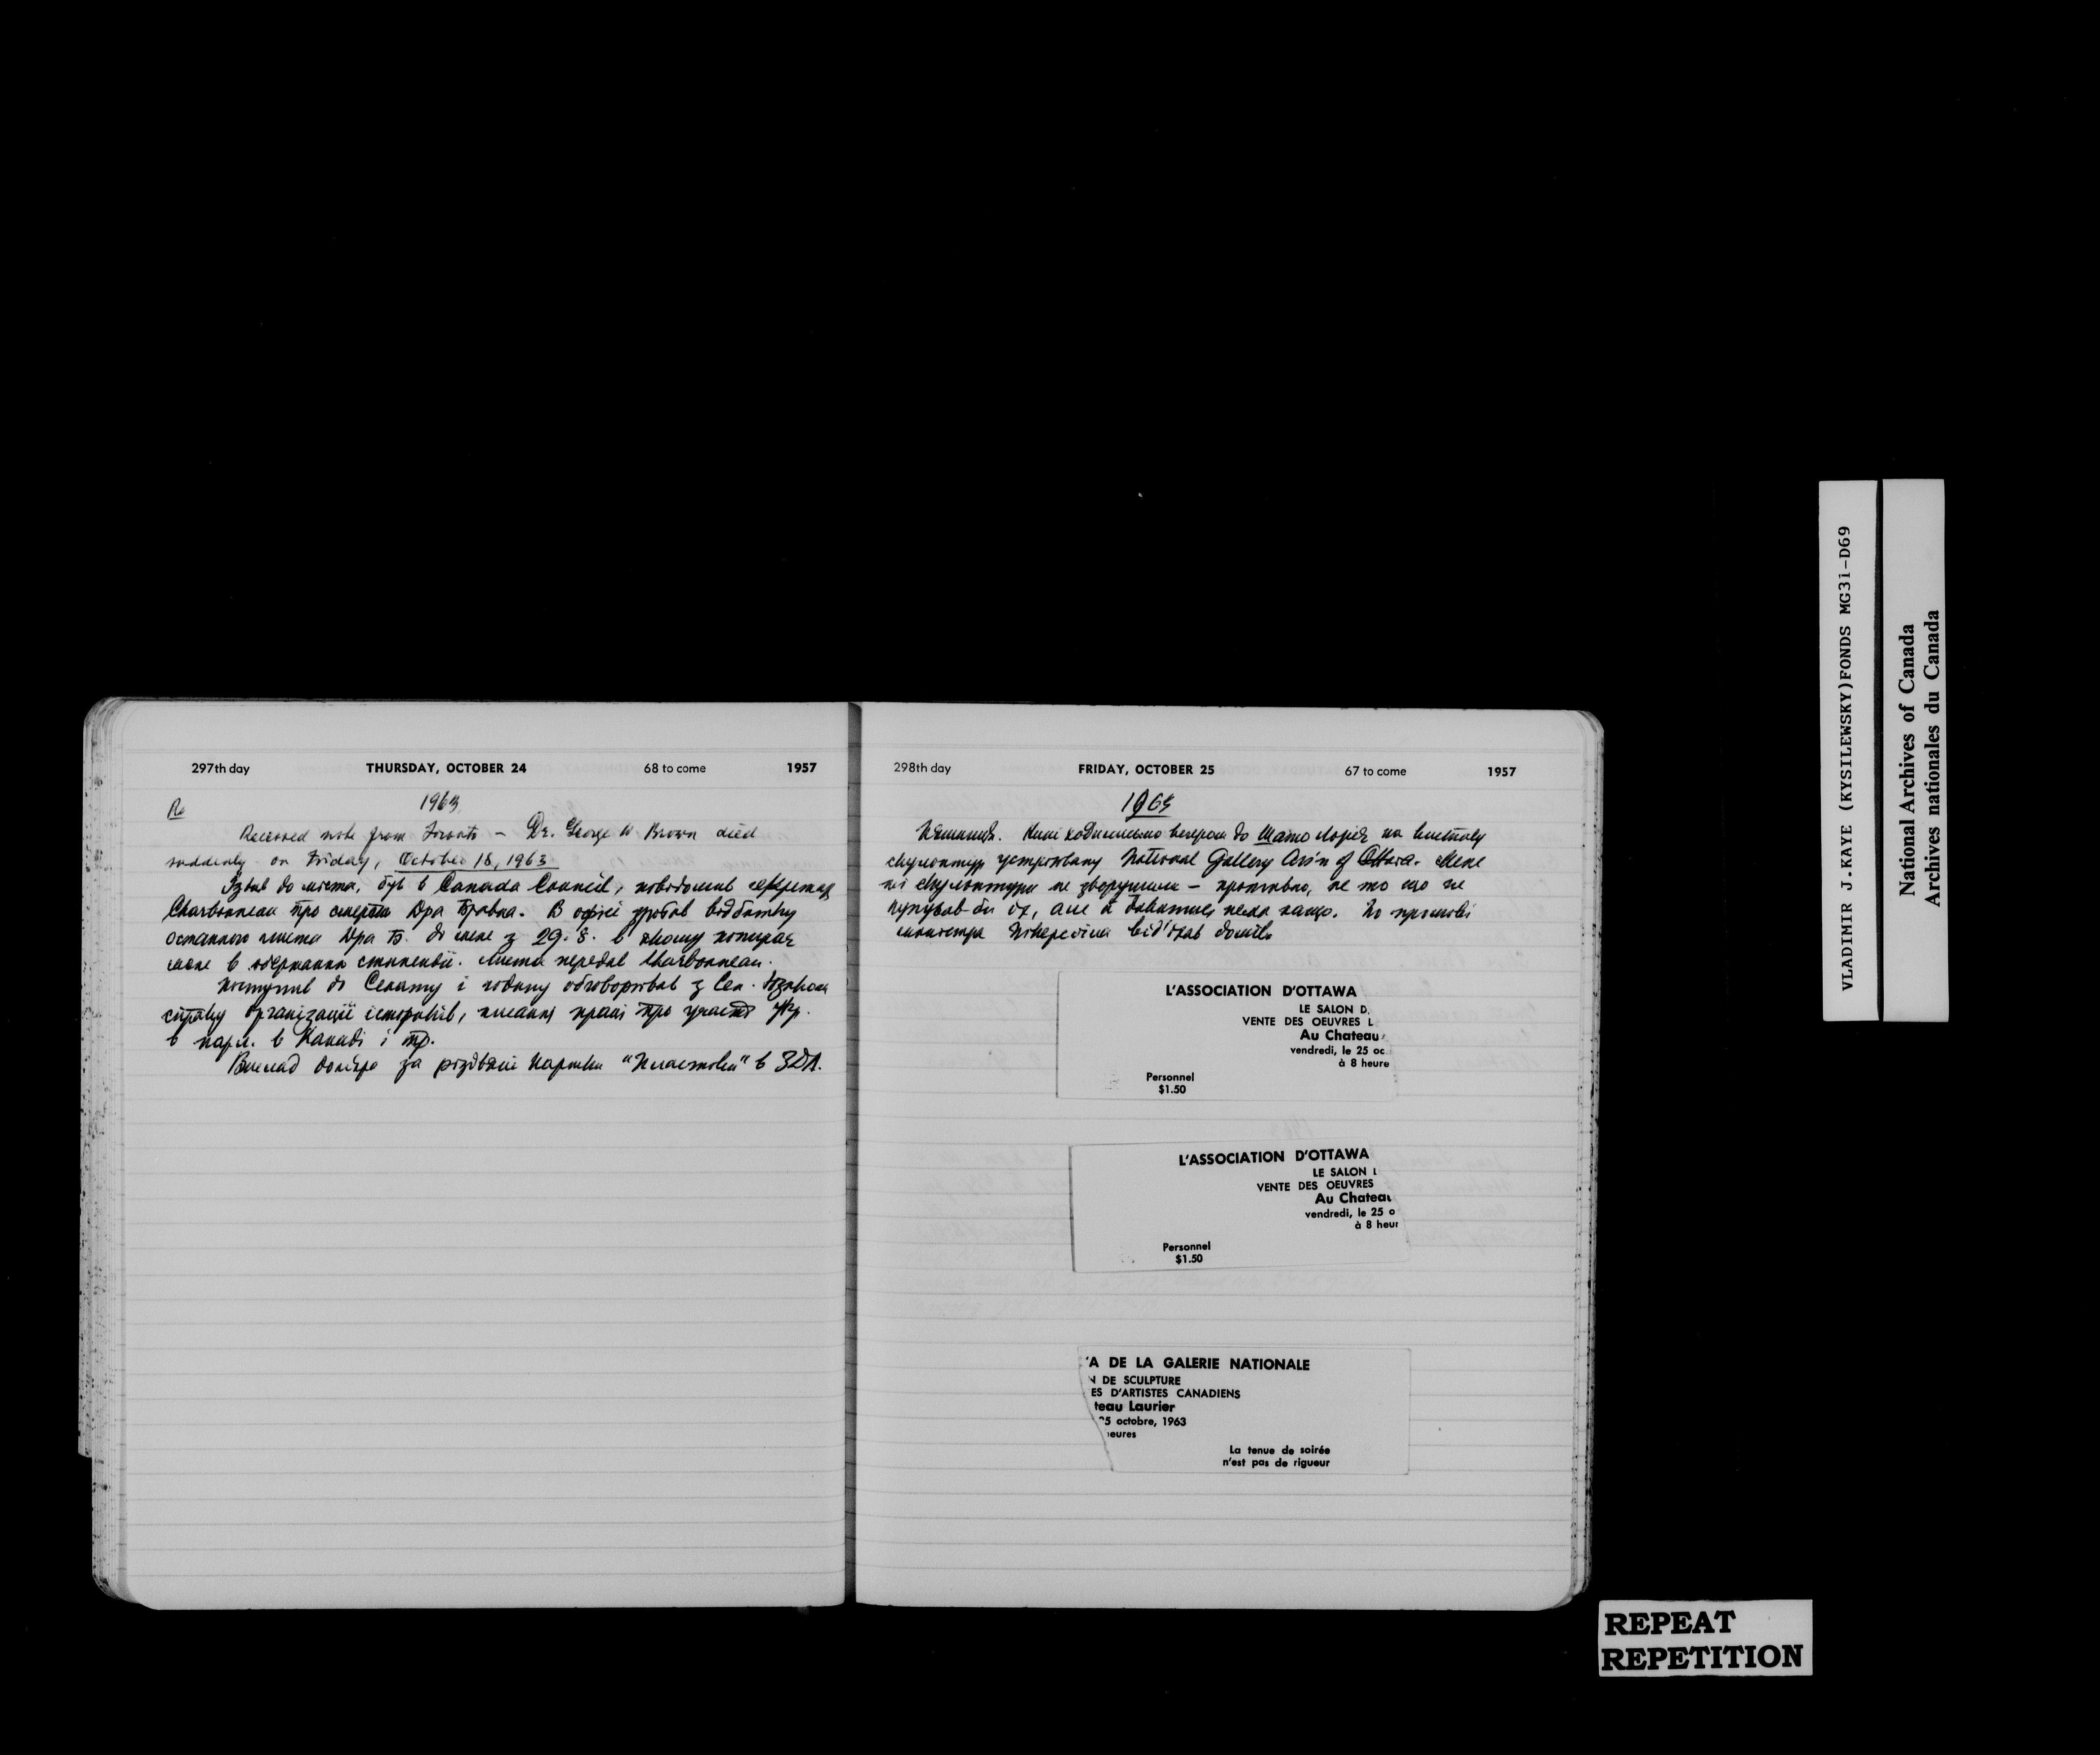 297th day THURSDAY, OCTOBER 24 68 to come 1957
1963
Re
Received note from Toronto – Dr. George W Brown died
suddenly on Friday, October 18, 1963
Їздив до міста, був в Canada Council, повідомив секретар
Charbonneau про смерть Дра Бравна. В офісі зробив відбитку
останнього листа Дра Б. до мене з 29. 8. в якому попирає
мене в одержанню стипендії. Листа передав Charbonneau.
Поступив до Сенату і годину обговорював з Сен.
справу організації істориків, писання праці про участь Укр.
в парл. в Канаді і тд.
Вислав доляра за різдвяні картки "Пластової" в ЗДА.
298th day FRIDAY, OCTOBER 25 67 to come 1957
1963
Пятниця. Нині ходилисьмо вечером до Шато Лоріє на виставу
скульптур устроювану National Gallery Ass'n of Ottawa. Мене
ті скульптури не зворушили – противно, не то що не
купував би їх, але й дивитись нема нащо. По промові
міністра Пікерсґіла від'їхав домів.
L'ASSOCIATION D'OTTAWA
LE SALON D
VENTE DES OEUVRES
Au Chateau
vendredi, le 25 oc
à 8 heure
Personnel
$1.50
L'ASSOCIATION D'OTTAWA
LE SALON
VENTE DES OEUVRES
Au Chateau
vendredi, le 25 o
à 8 heur
Personnel
$1.50
'A DE LA GALERIE NATIONALE
N DE SCULPTURE
ES D'ARTISTES CANADIENS
teau Laurier
25 octobre, 1963
heures
La tenue de soirée
n'est pas de rigueur
VLADIMIR J.KAYE (KYSILEWSKY)FONDS MG31-D69
National Archives of Canada
Archives nationales du Canada
REPEAT
REPETITION